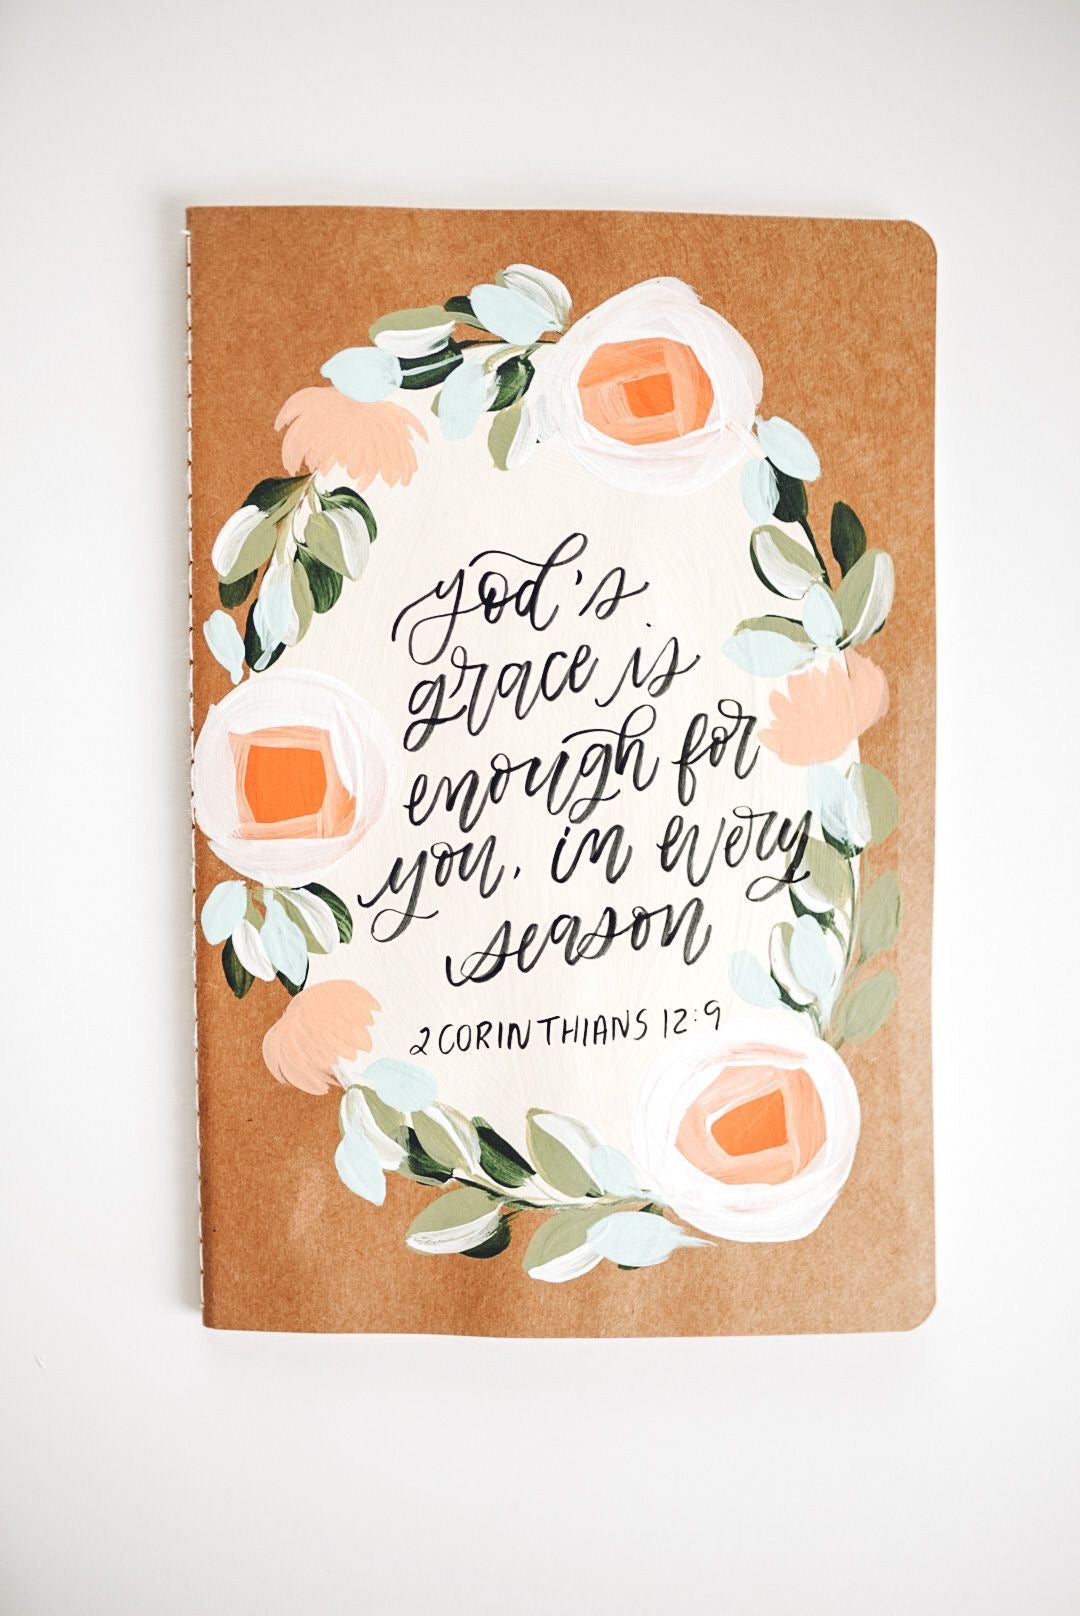 god's
grace is
enough for
you, in every
season
2 CORINTHIANS 12:9